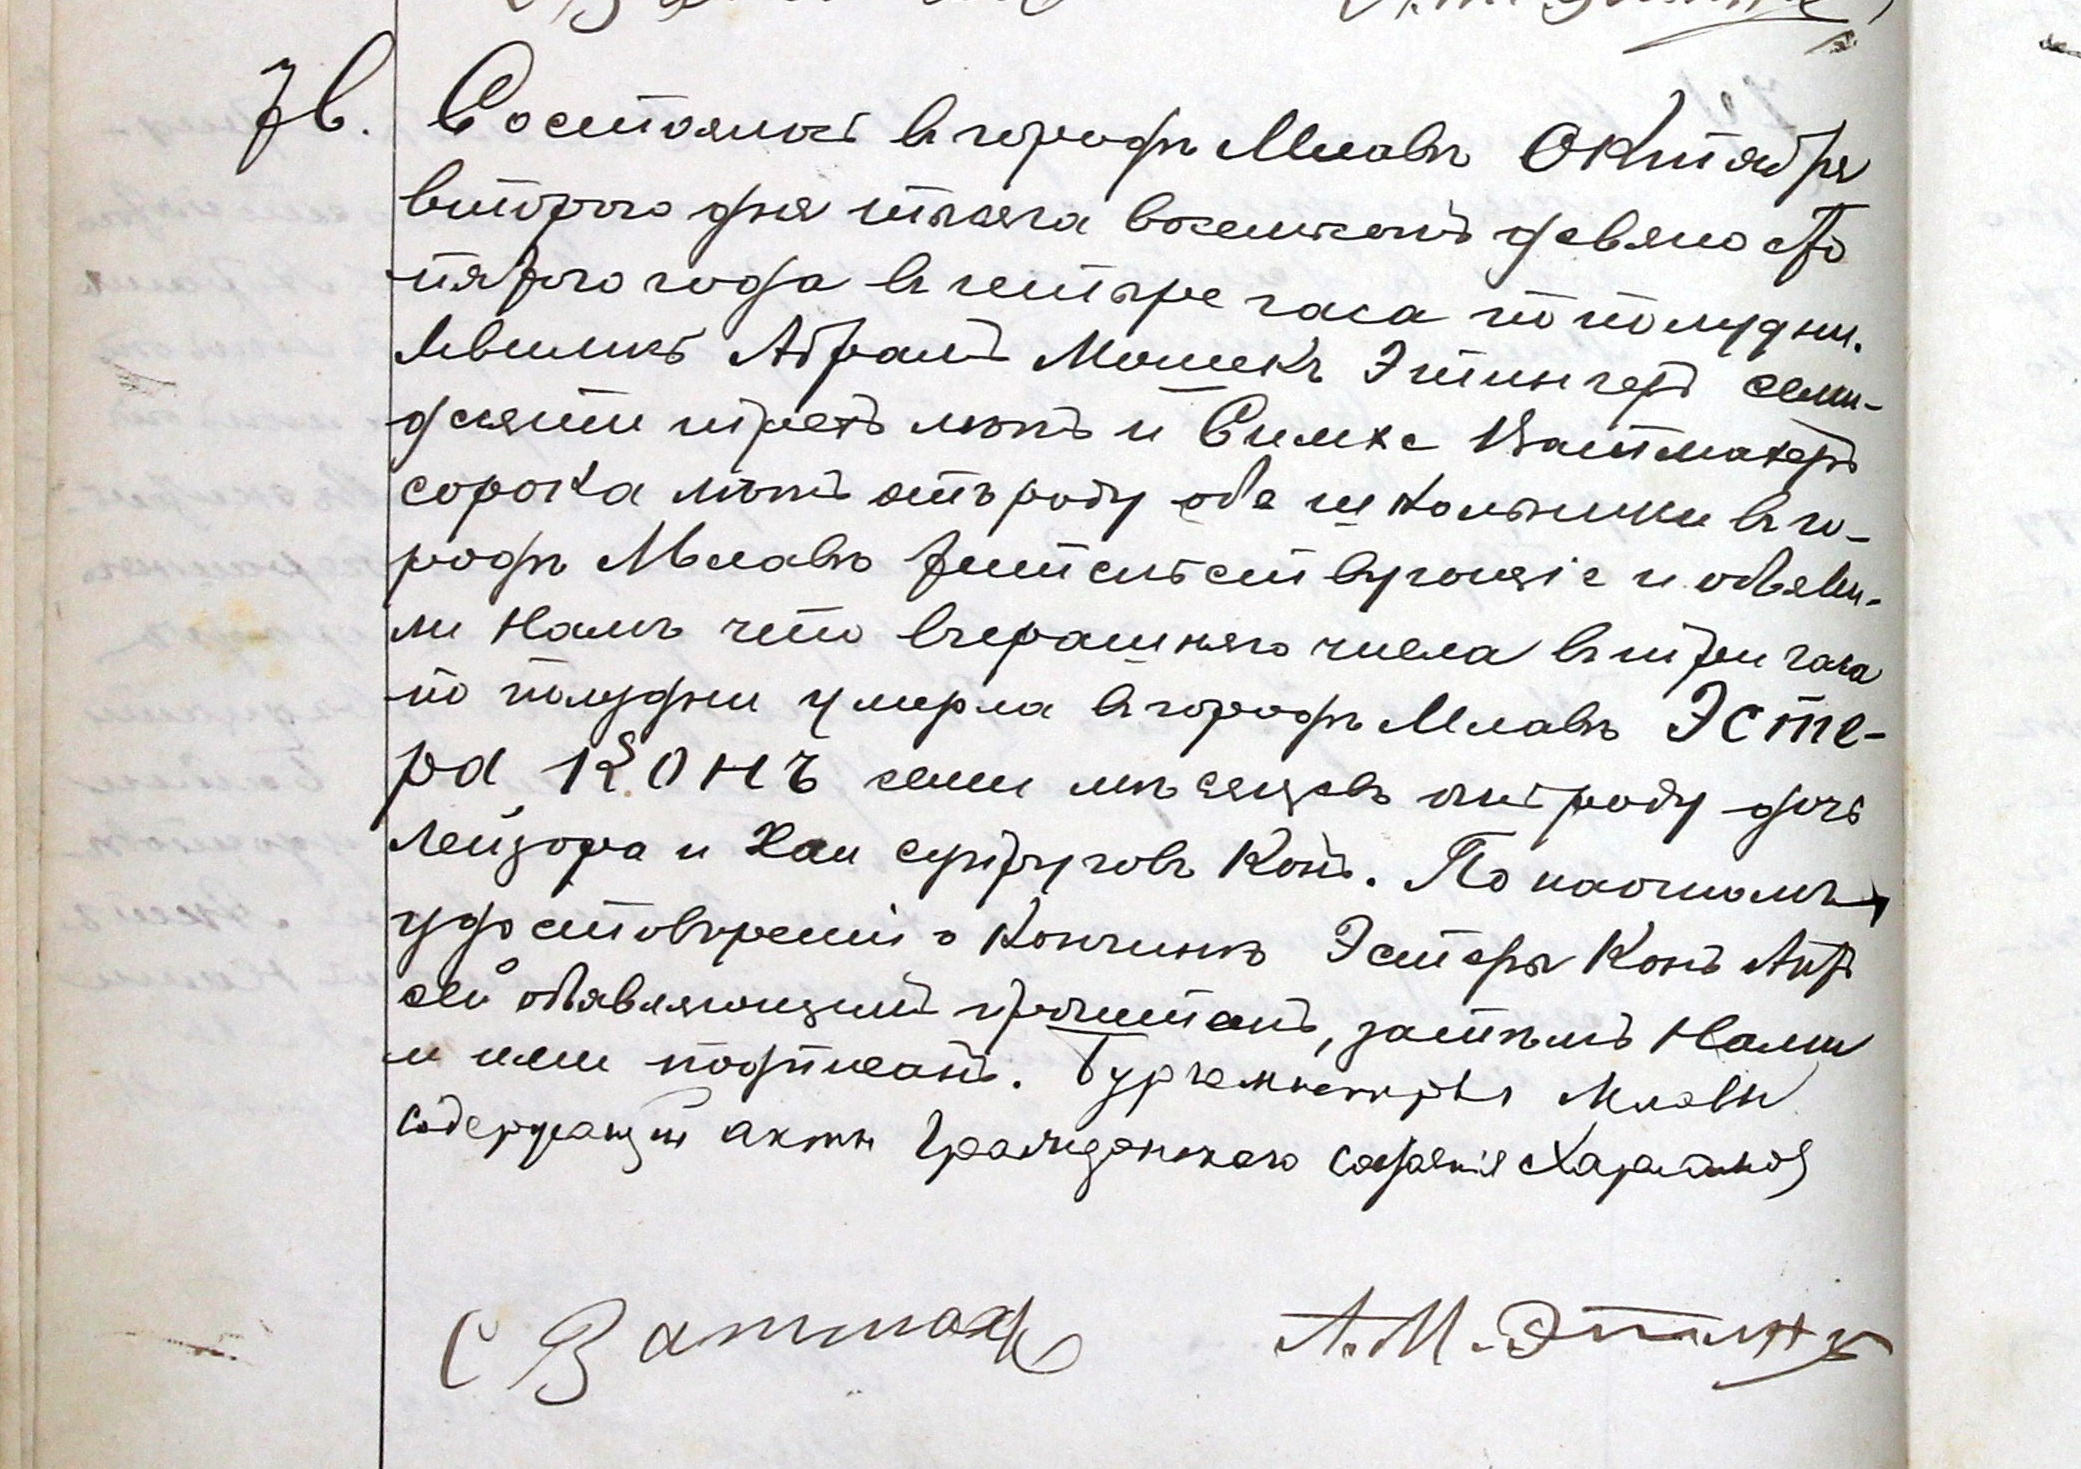 78. Состоялось въ городѣ Млавѣ Октября
втораго дня тысяча восемьсотъ девяносто
пятаго года въ четыре часа по полудни.
Явились Абрамъ Мошекъ Этингеръ семи-
десяти трехъ лѣтъ и Симха Ватмахеръ
сорока лѣтъ отъ роду оба школьники въ го-
родѣ Млавѣ жительствующіе и объяви-
ли Намъ что вчерашняго числа въ три часа
по полудни умерла въ городѣ Млавѣ Эсте-
ра Конъ семи мѣсяцевъ отъ роду дочь
Лейзора и Хаи супруговъ Конъ. По наочномъ
удостовѣреніи о кончинѣ Эстеры Конъ Актъ
сей объявляющимъ прочитанъ, затѣмъ Нами
и ими подписанъ. Бургомистръ г Млавы
содержащій акты Гражданскаго состоянія
С Ватмахеръ А. М. Этинг